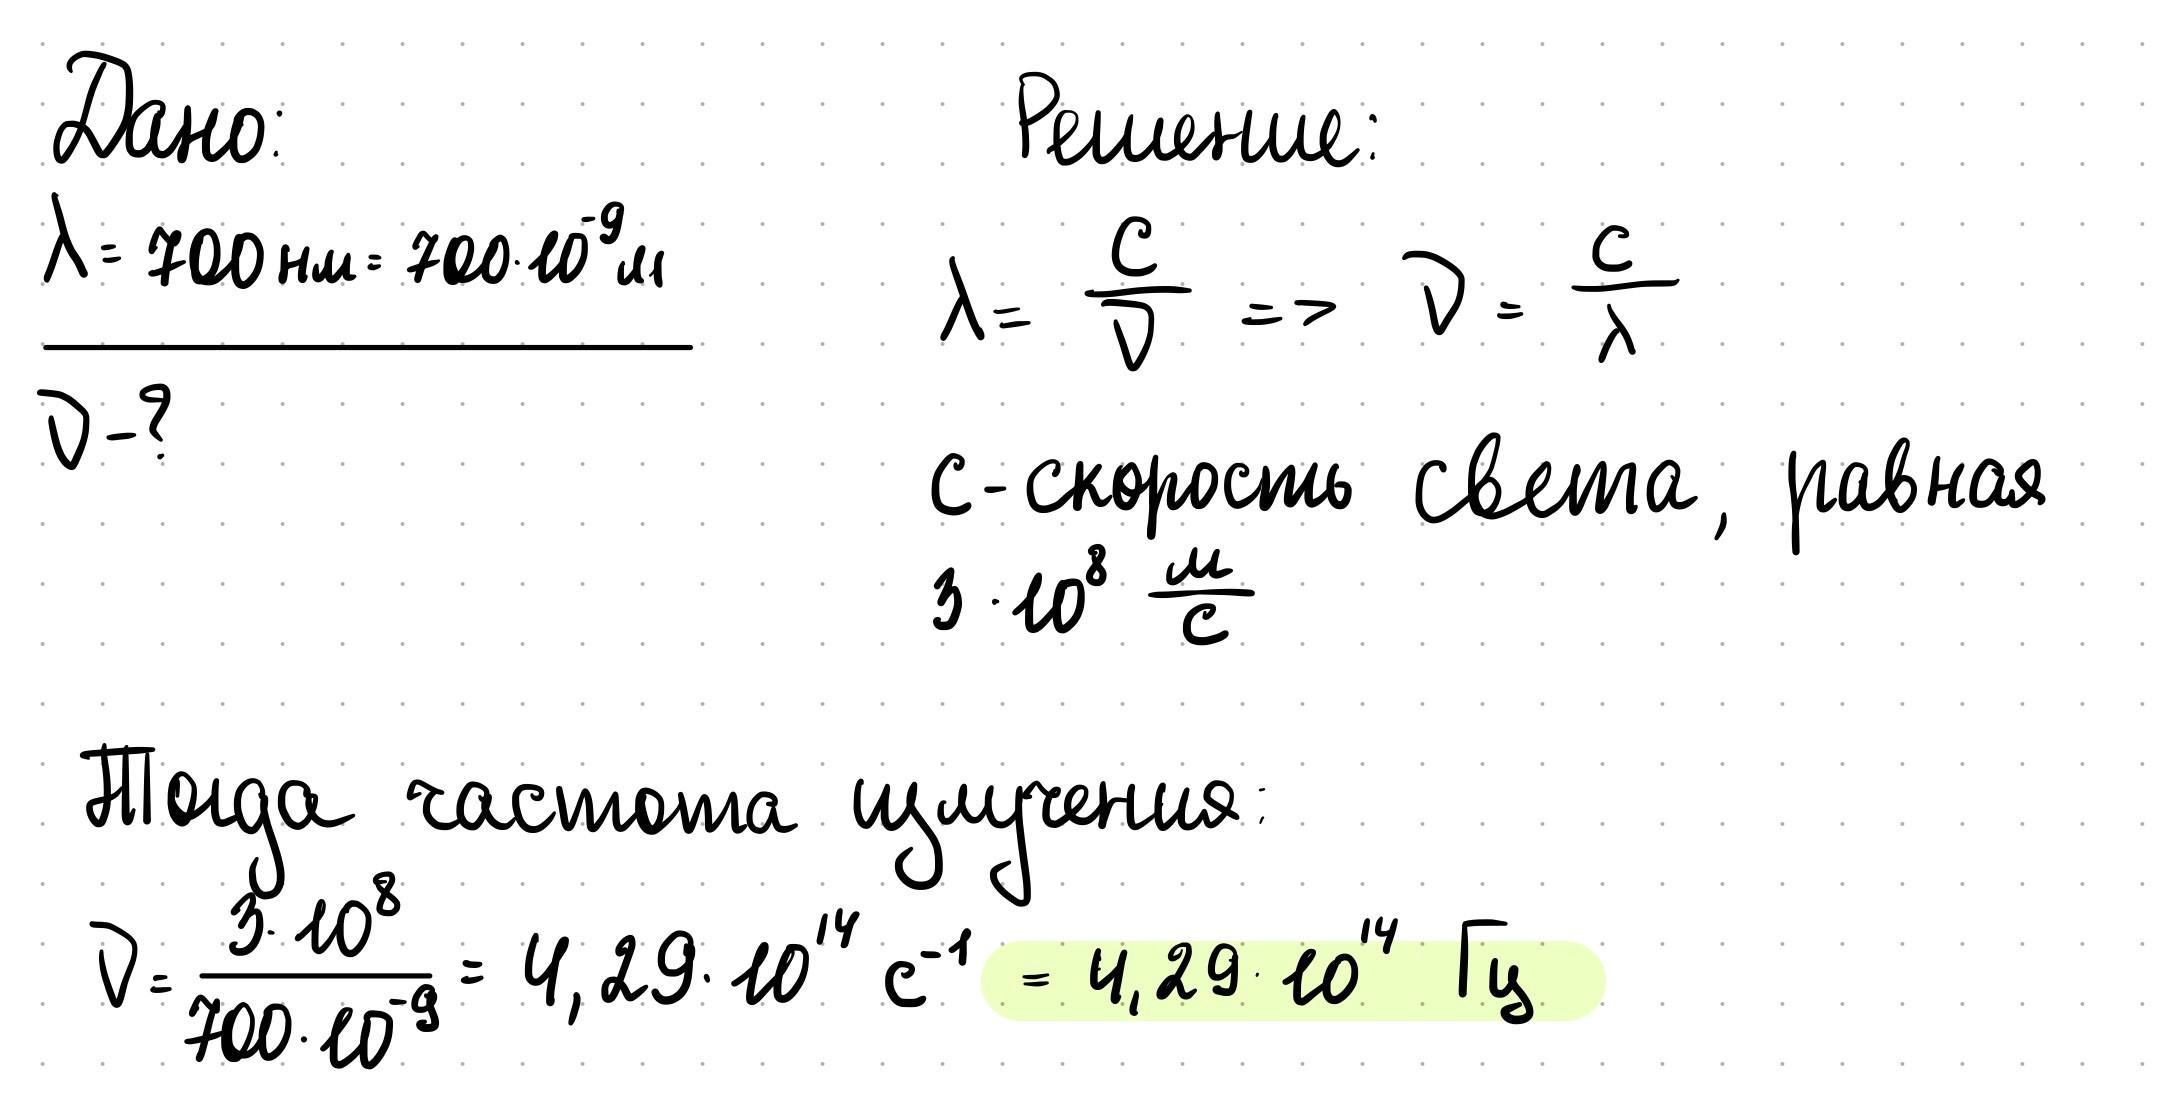 Дано:
λ = 700 нм = 700·10⁻⁹ м
ν - ?
Решение:
λ = c/ν => ν = c/λ
с - скорость света, равная
3·10⁸ м/с
Тогда частота излучения:
ν = 3·10⁸/700·10⁻⁹ = 4,29·10¹⁴ с⁻¹ = 4,29·10¹⁴ Гц